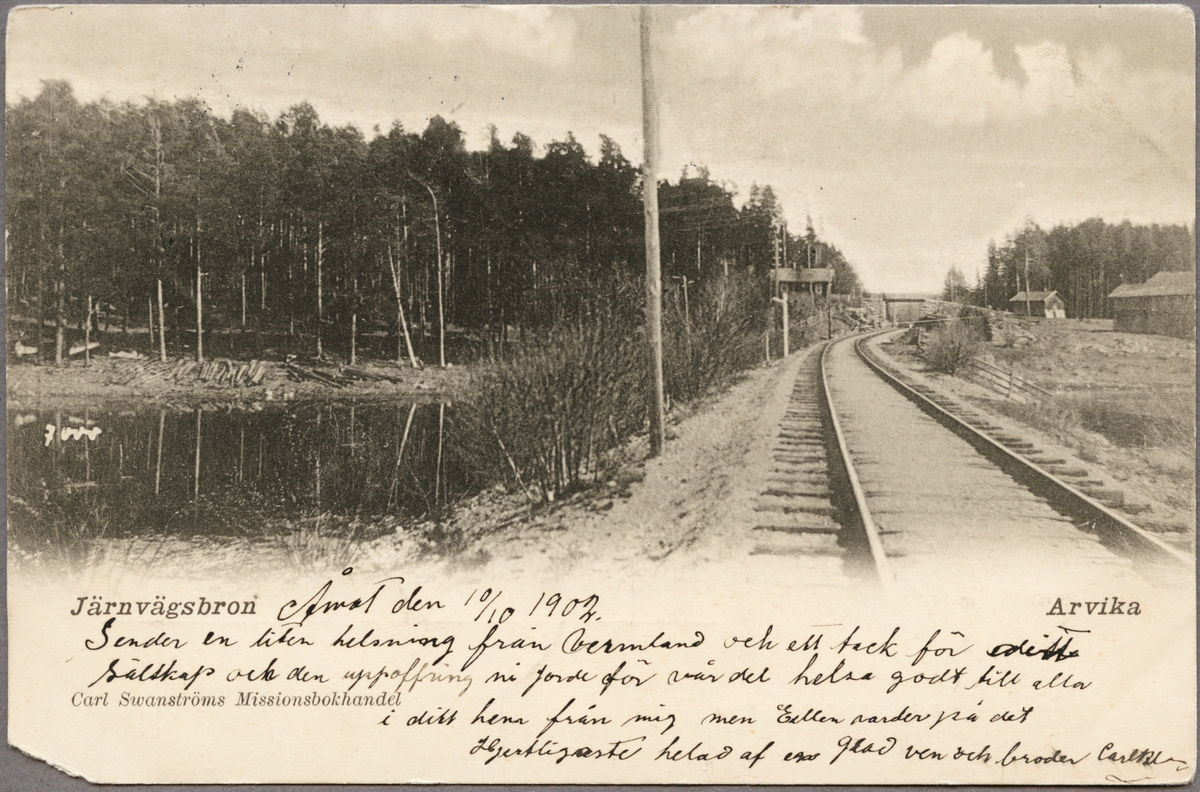 Järnvägsbron Åmot den 10/10 1902. Arvika
Sender en liten helsning från Vermland och ett tack för ditt
sälskap och den uppoffring ni jorde för vår del helsa godt till alla
Carl Swanströms Missionsbokhandel
i ditt hem från mig men Ellen varder på det
Hjertligaste helsad af en glad ven och broder